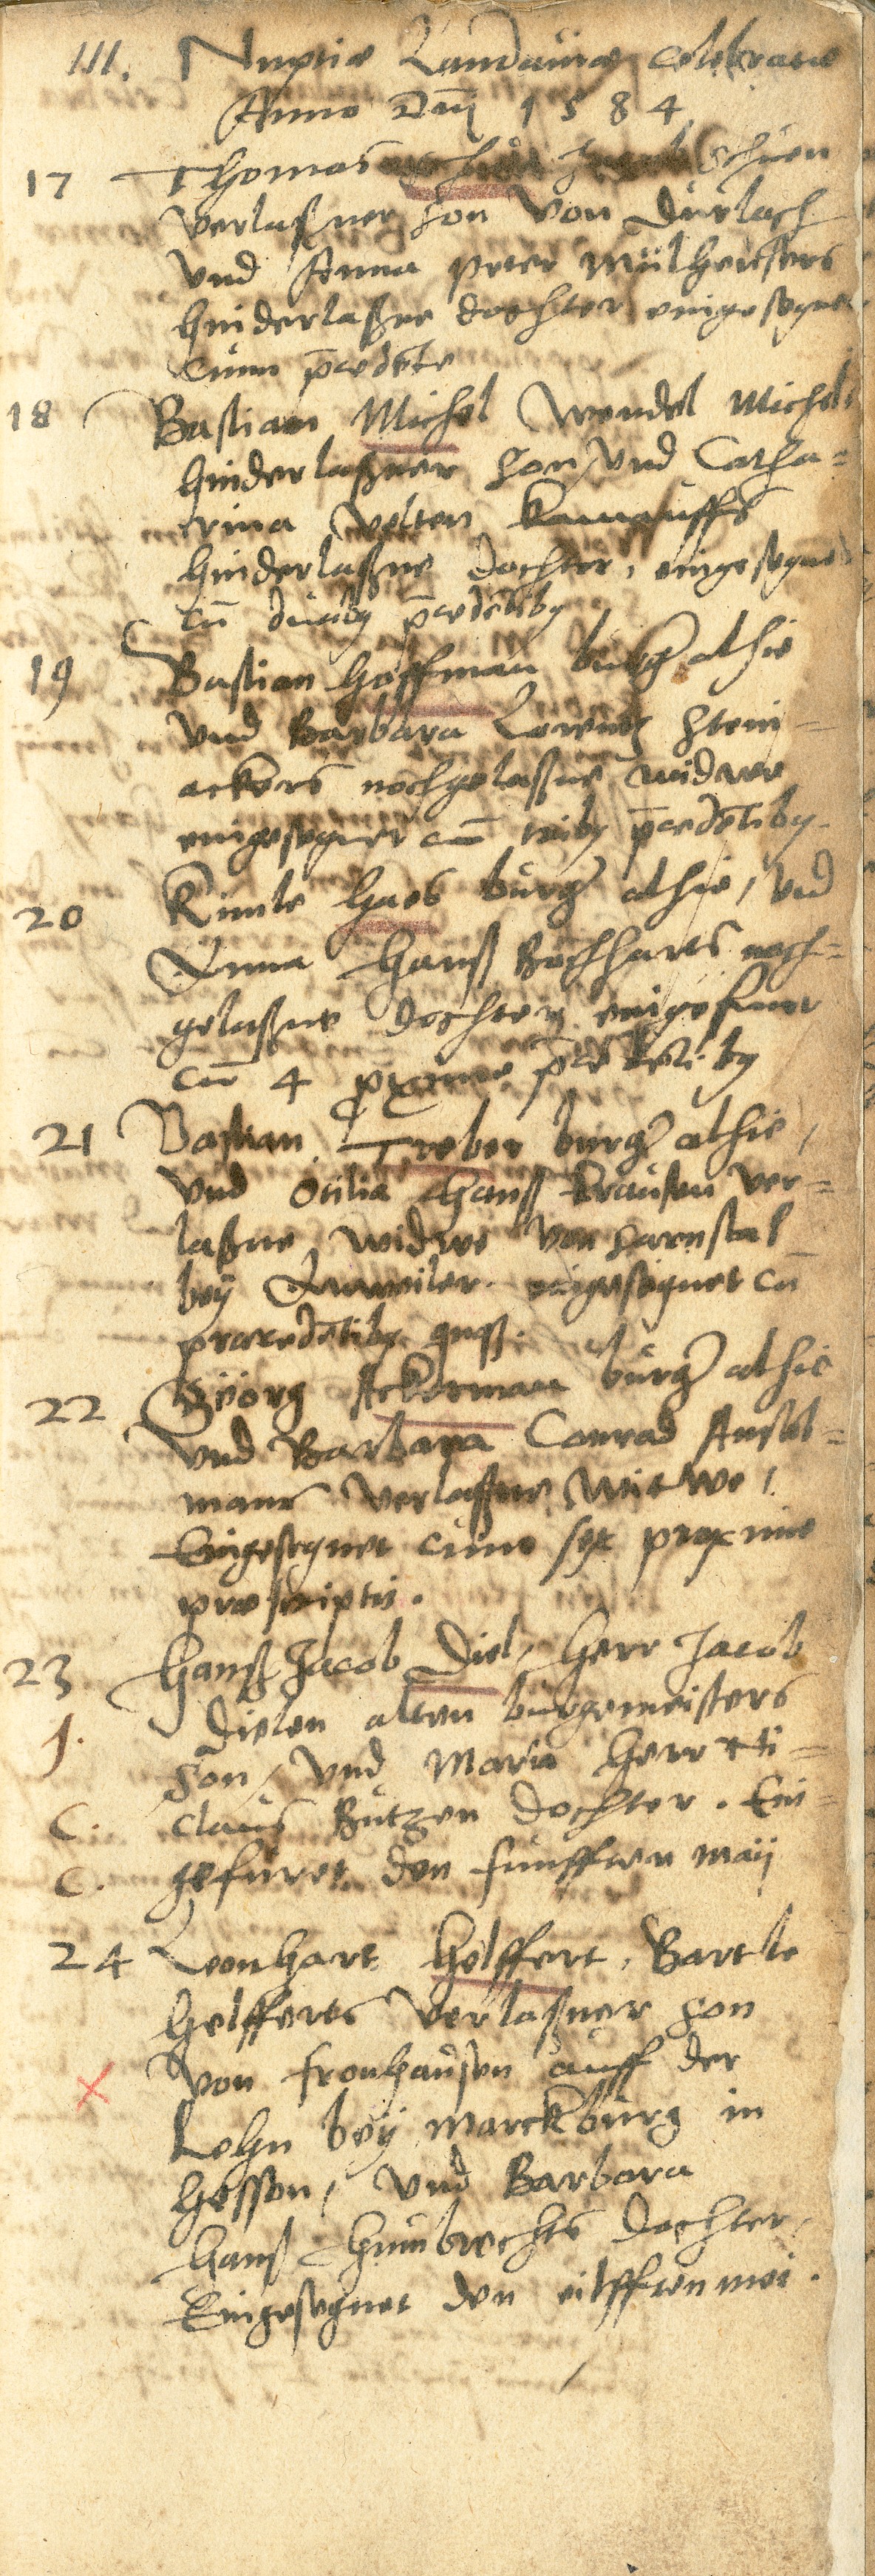 III. Nuptiæ Landauiæ celebratæ
Anno Dnj 1584
17 Thomas Schuen
verlaßner son von Durlach
vnd Anna peter Mülheusers
hinderlaßne dochter eingesegnet
cum p̄cedēte
18 Bastian Michel Wendel Michels
hinderlaßner son, vnd Catha=
rina Velten
hinderlaßne dochter, eingesegnet
cū duoby p̄cedētiby
19 Bastian Hoffman burger alhie
vnd Barbara Lorentz Stein=
ackers nachgelaßne widwe
eingesegnet cū triby p̄cedētiby
20 Kimle Haes burger alhie, vnd
Anna Hanß Bechharts nach=
gelaßne dochter eingefuert
cū 4 proxime p̄cedētiby
21 Bastian Treber burger alhie,
vnd Otilia Hanß Krausen ver=
laßne widwe von Sarnstal
bey Anweiler. eingesegnet cū
præcedētiby quinq3.
22 Georg Ackerman burger alhie
vnd Barbara Conrad Anstel=
mans verlaßne Witwe,
Eingesegnet cum sex proxime
præscriptis.
23 Hanß Jacob Diel, Herr Jacob
J. Dielen alten burgemeisters
son, vnd Maria Herr Ni=
C. claus Butzen dochter. Ein=
C. gefüret den funfften maij
24 Leonhart Helffert, Bartle
Helfferts verlaßner son
von fronhausen auff der
Lohn bey Marckburg in
Hessen, vnd Barbara
Hanß Humbrechts dochter,
Eingesegnet den eilfften mei.